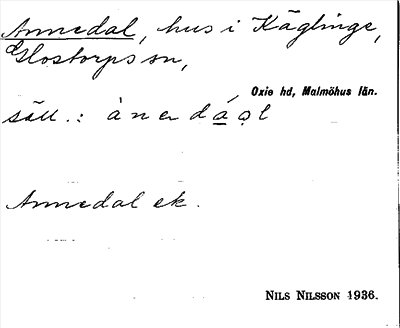 Annedal, hus i Käglinge,
Glostorps sn,
Oxie hd, Malmöhus län.
säll.:
Annedal ek.
NILS NILSSON 1936.